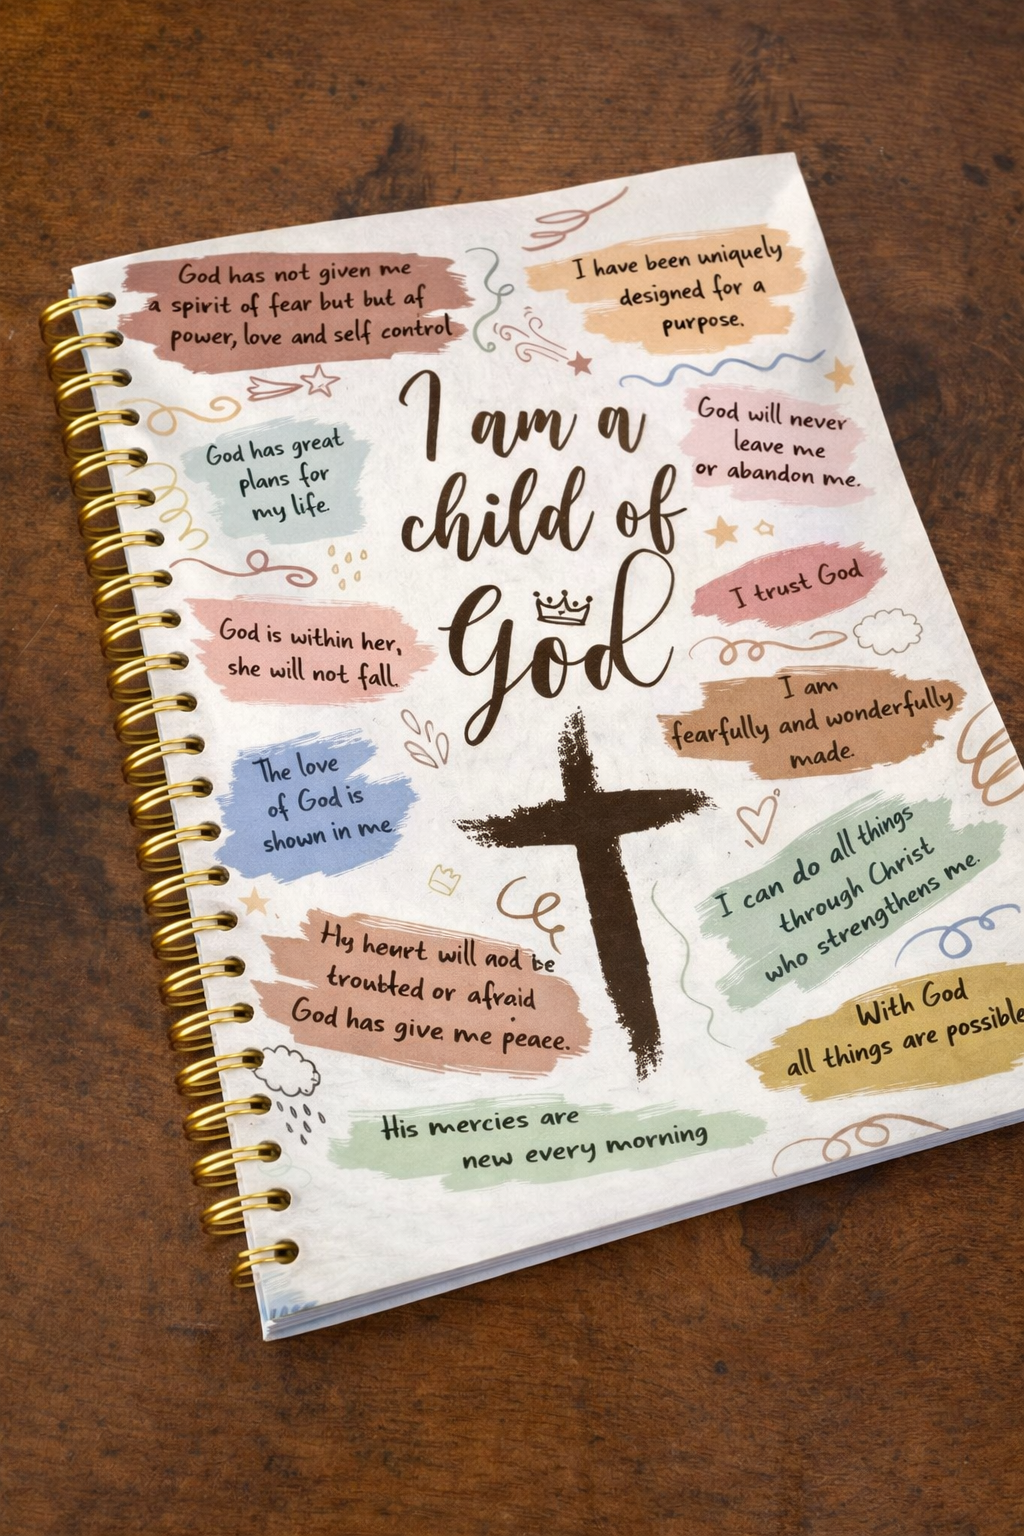 God has not given me
a spirit of fear but but af
power, love and self control
I have been uniquely
designed for a
purpose.
I am a
child of
God
God has great
plans for
my life.
God will never
leave me
or abandon me.
I trust God
God is within her,
she will not fall.
I am
fearfully and wonderfully
made.
The love
of God is
shown in me.
I can do all things
through Christ
who strengthens me.
Hy heurt will aod be
troubted or afraid
God has give me peace.
With God
all things are possible
His mercies are
new every morning